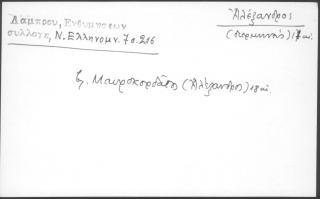 Λάμπρου, Ενθυμήσεων
συλλογή, Ν. Ελληνομν. 7 σ. 216
Ἀλέξανδρος
(διερμηνεύς) 17 αἰ.
βλ. Μαυροκορδᾶτος (Ἀλέξανδρος) 18 αἰ.